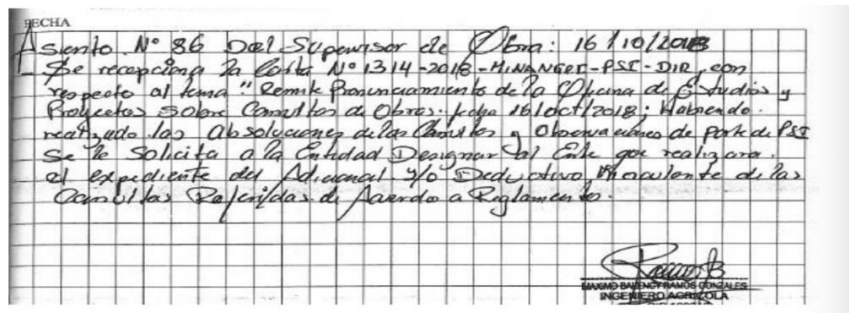 FECHA
Asiento N° 86 Del Supervisor de Obra: 16/10/2018
- Se recepciona la Carta N° 1314-2018-MINANGRI-PSI-DIR, con
respecto al tema "Remite Pronunciamiento de la Oficina de Estudios y
Proyectos sobre Consultas de Obras. fecha 16/oct/2018; Habiendo
realizado las absoluciones de las Consultas y Observaciones de parte de PSI
Se le Solicita a la Entidad Designar al Ente que realizara
el expediente del Adicional y/o Deductivo Vinculante de las
Consultas Referidas de Acuerdo a Reglamento.
MAXIMO BALENCY RAMOS GONZALES
INGENIERO AGRICOLA